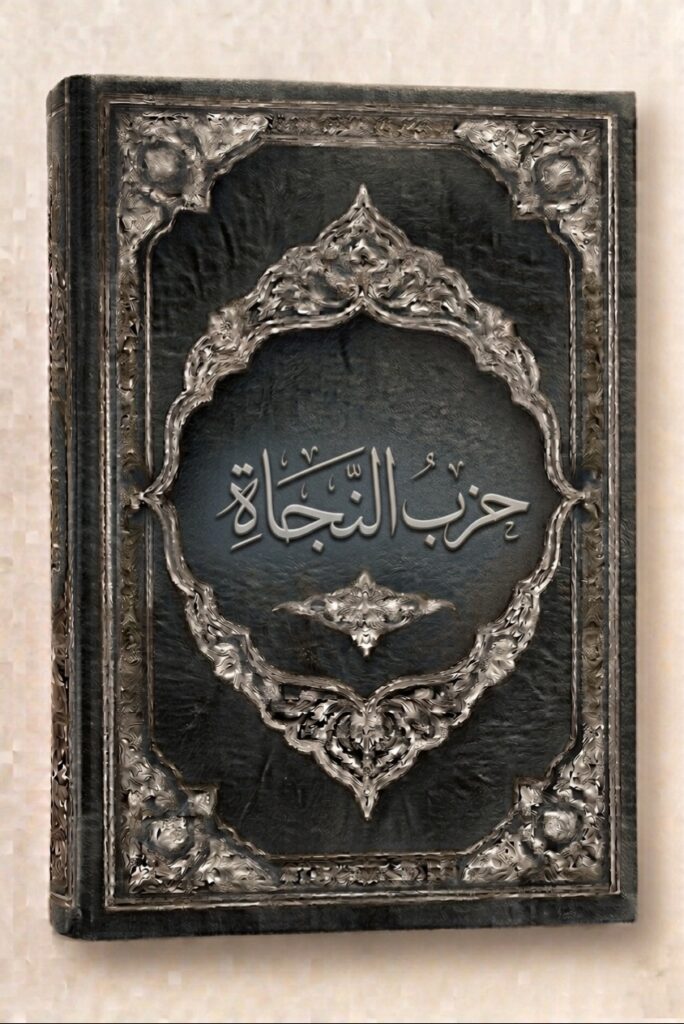 حزبُ النَّجَاةِ